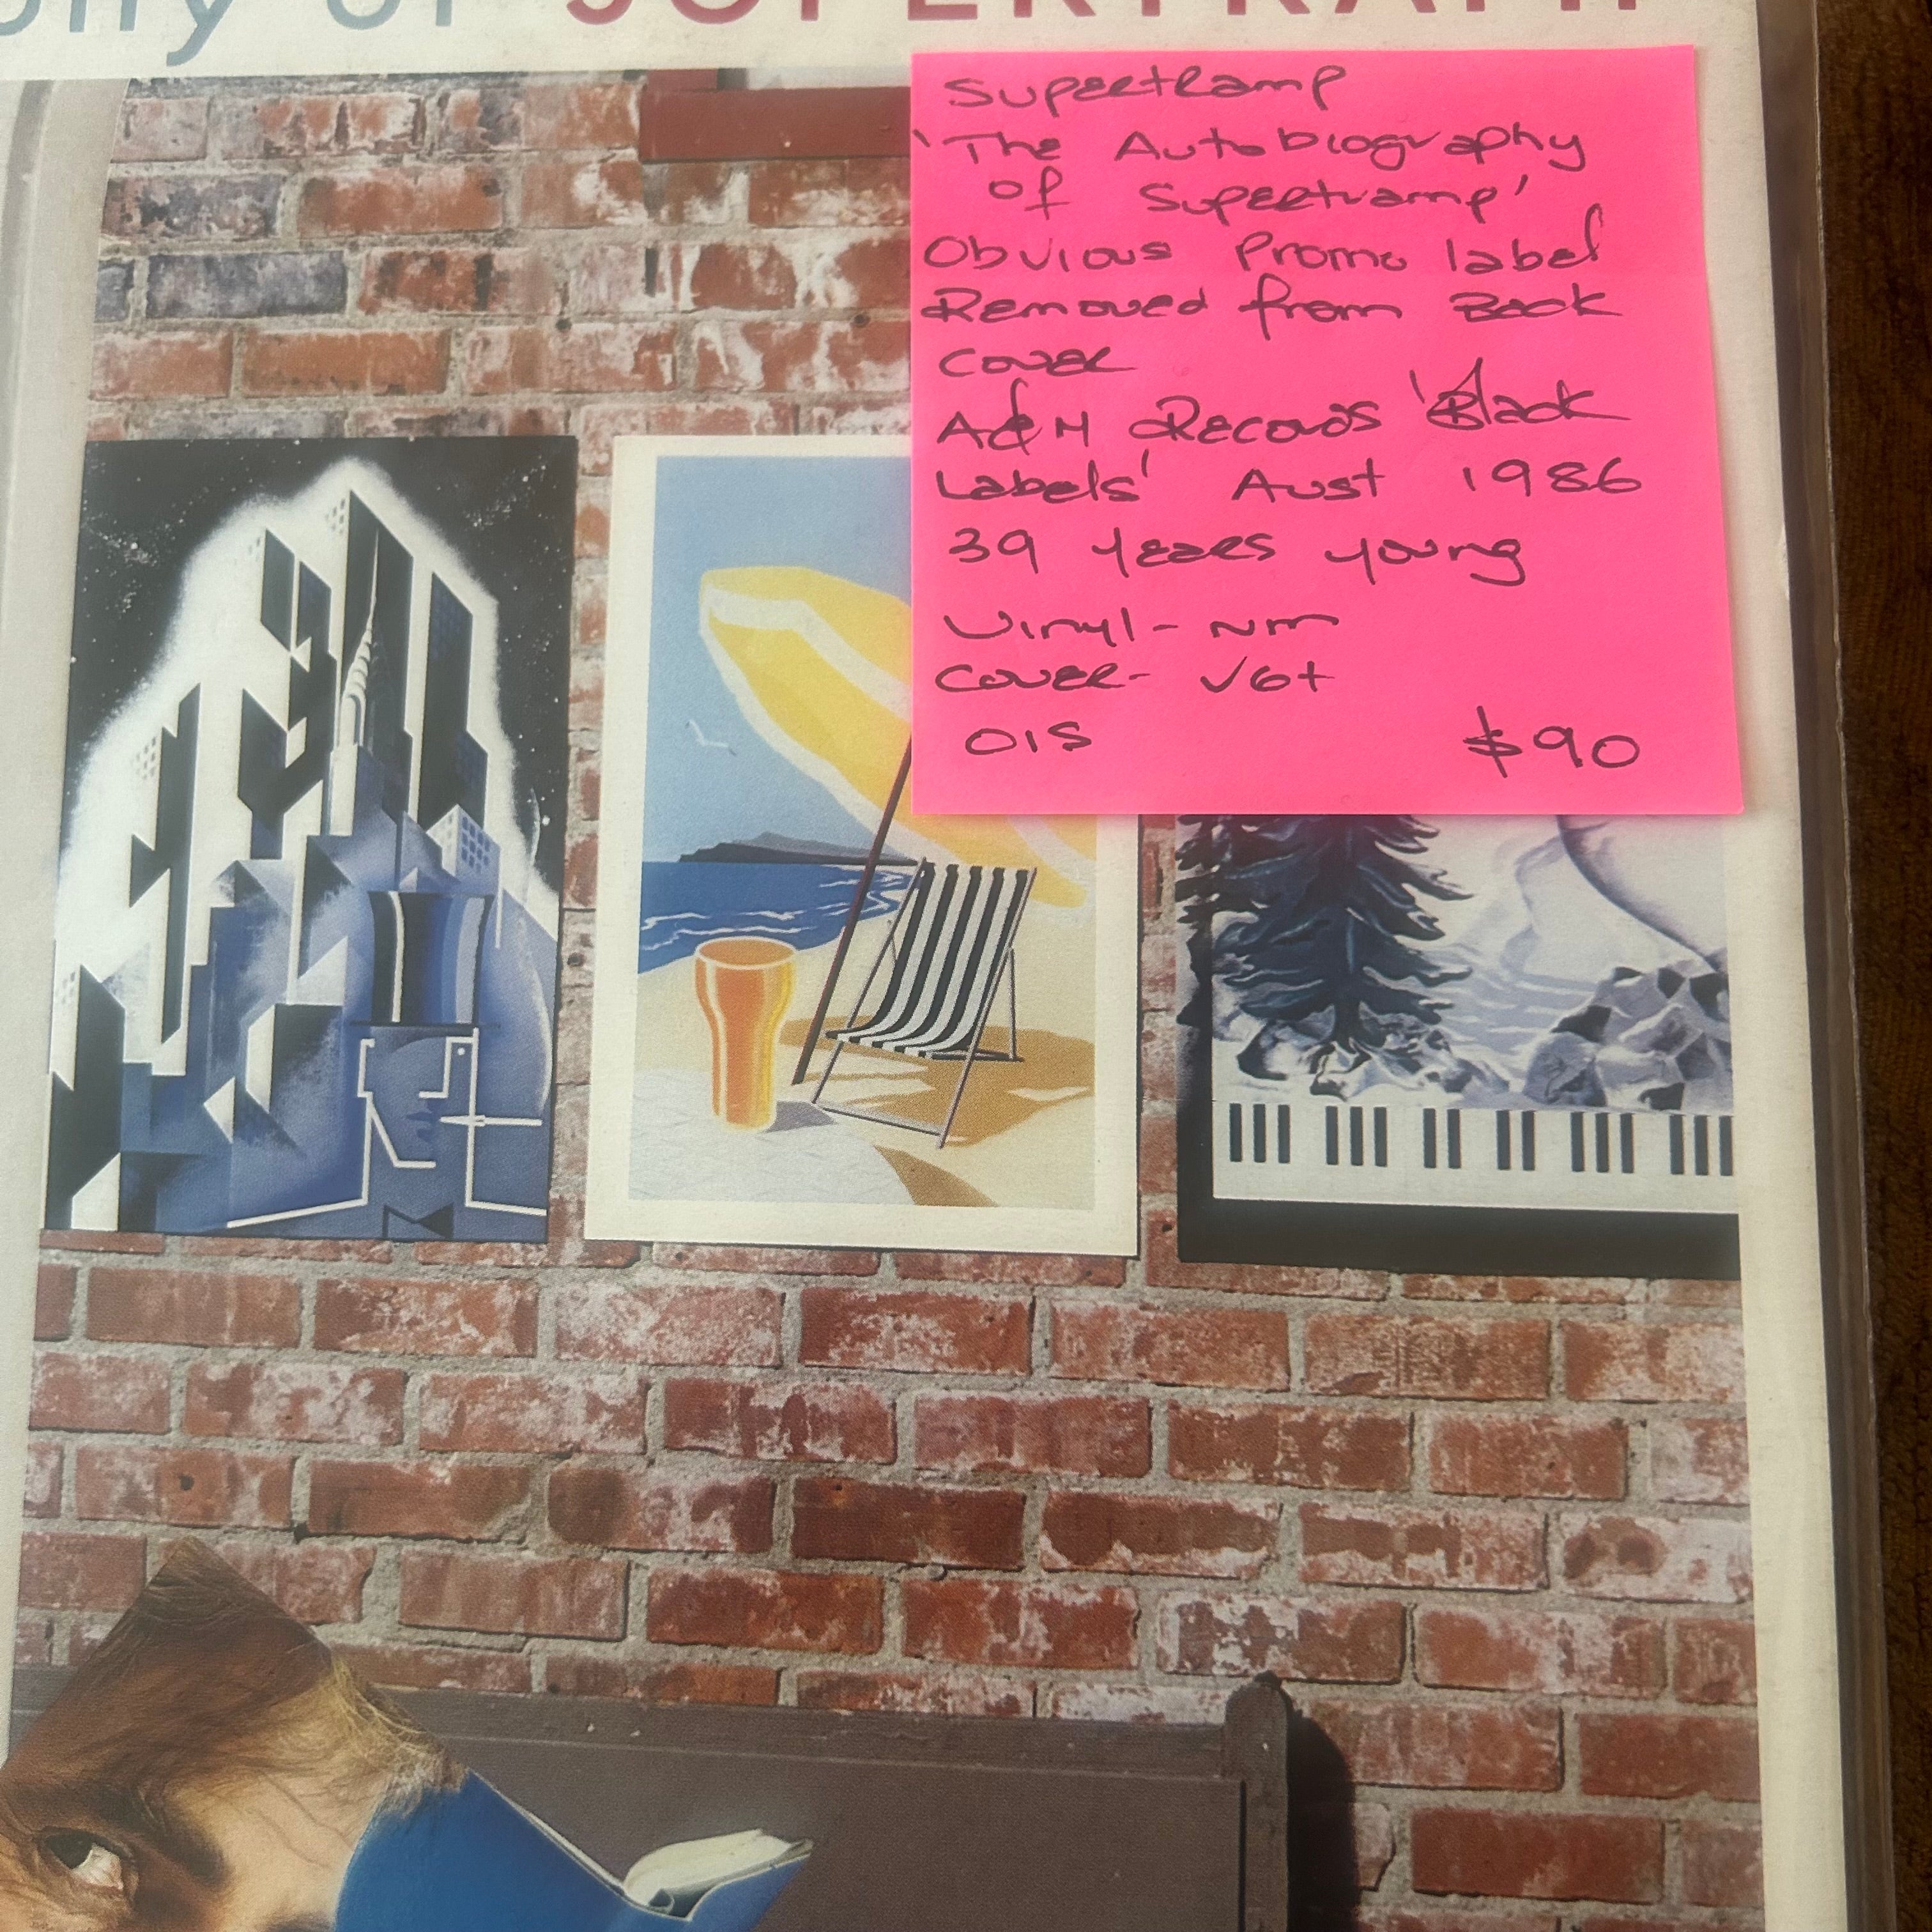 of SUPERTRAMP
Supertramp
'The Autobiography
of Supertramp'
Obvious Promo label
Removed from Back
Cover
A&M Records 'Black
Labels' Aust 1986
39 Years young
Vinyl - NM
Cover - VG+
OIS $90